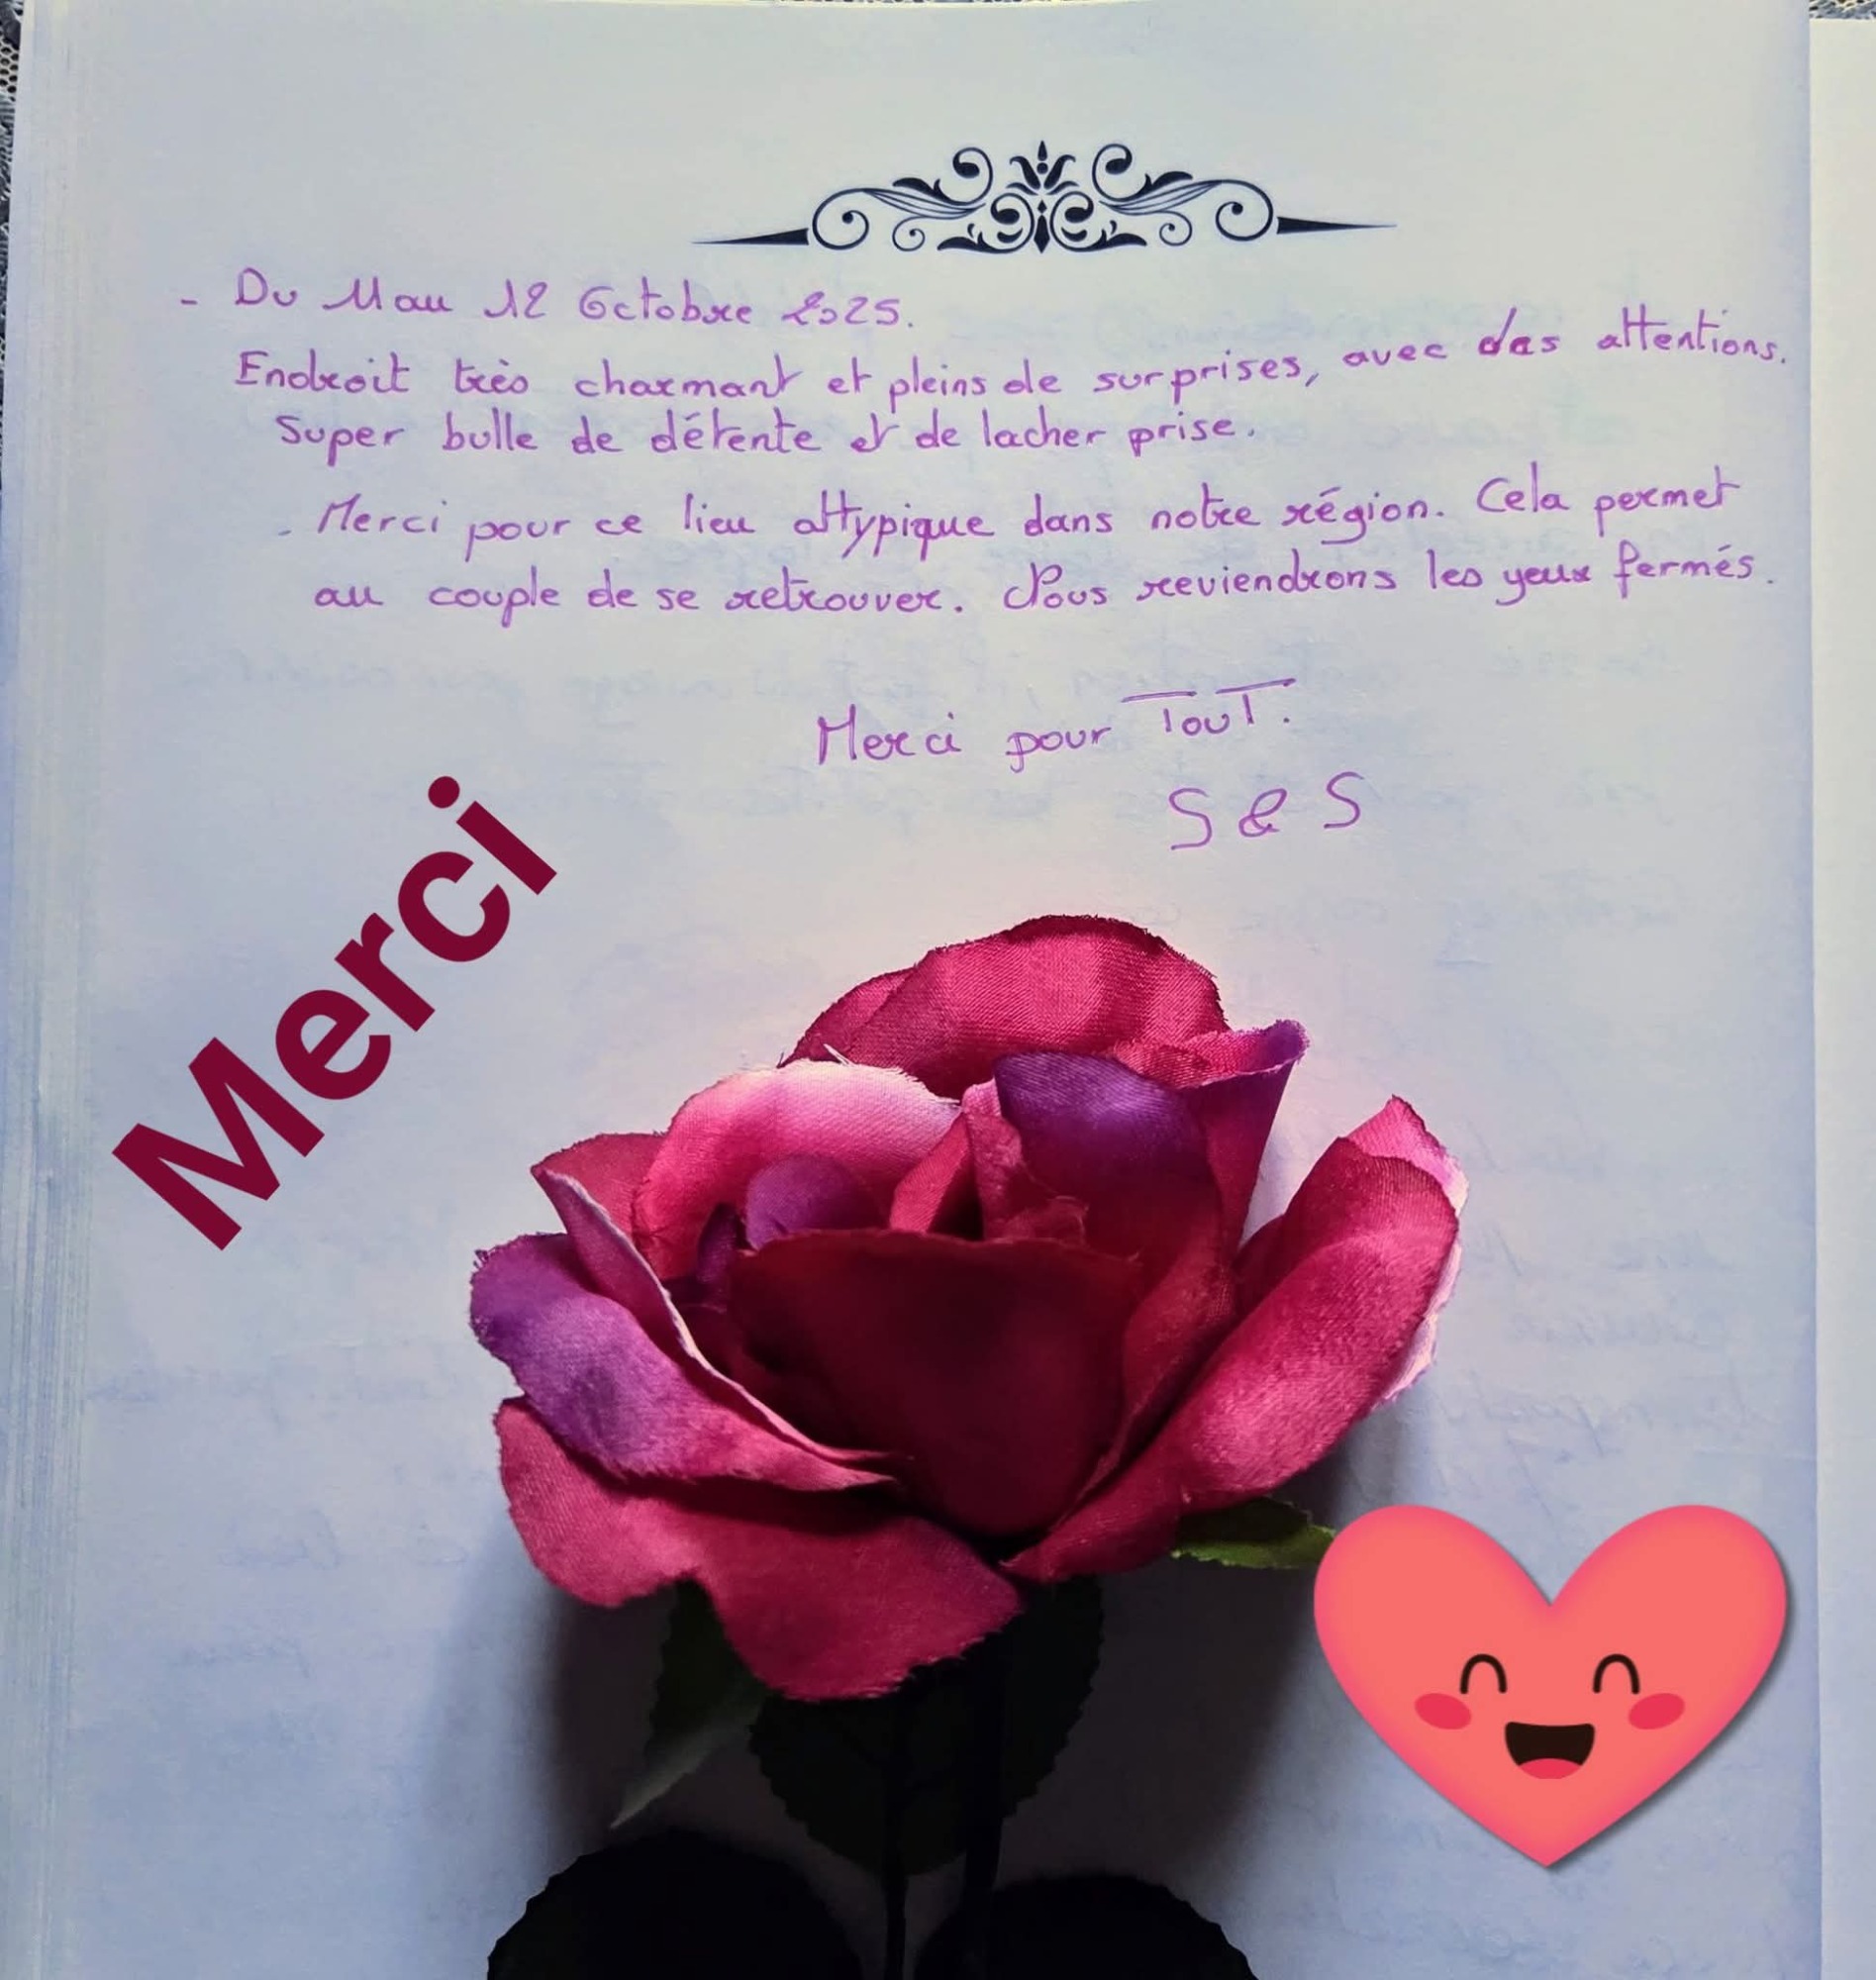 - Du 11 au 12 Octobre 2025.
Endroit très charmant et pleins de surprises, avec des attentions.
Super bulle de détente et de lacher prise.
- Merci pour ce lieu attypique dans notre région. Cela permet
au couple de se retrouver. Nous reviendrons les yeux fermés.
Merci pour TouT.
S & S
Merci